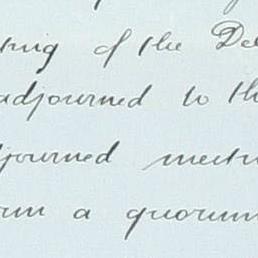 ting of the De
adjourned to th
djourned meetin
orm a quorum